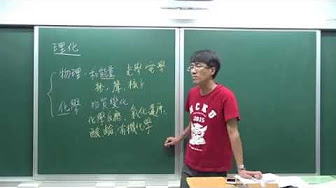 理化
物理:和能量 光學 電學
熱、聲、核子
化學 物質變化
化學反應、氧化還原、
酸鹼、有機化學
NCKU
2015